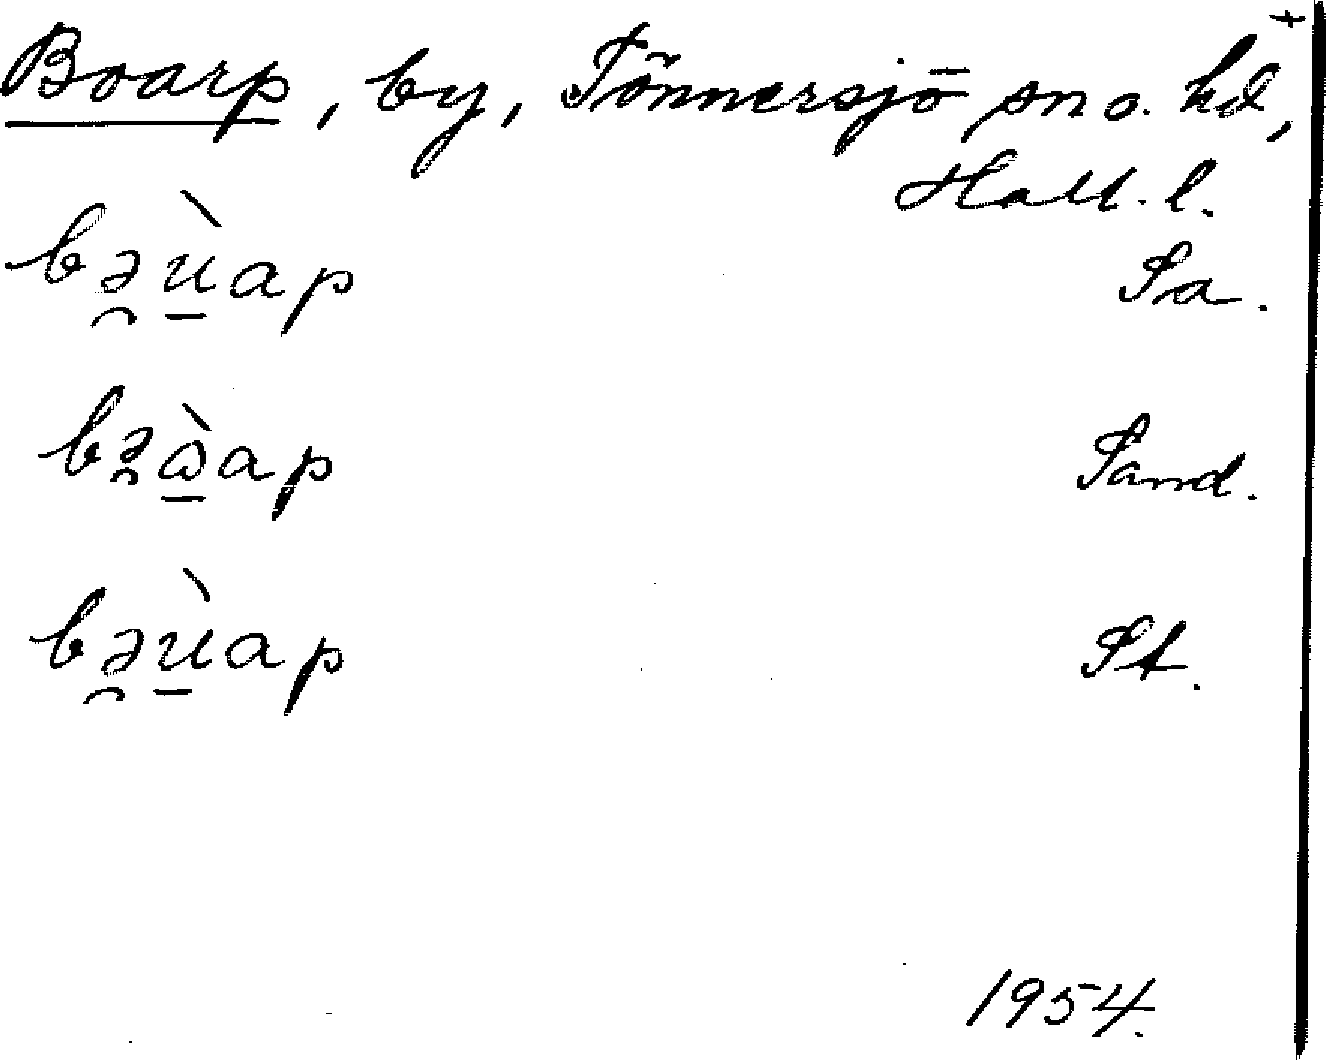 +
Boarp, by, Tönnersjö sn o. hd,
Hall. l.
bə̯ù̠ap Sa.
bə̯ὼ̠ap Sand.
bə̯ù̠ap St.
1954.